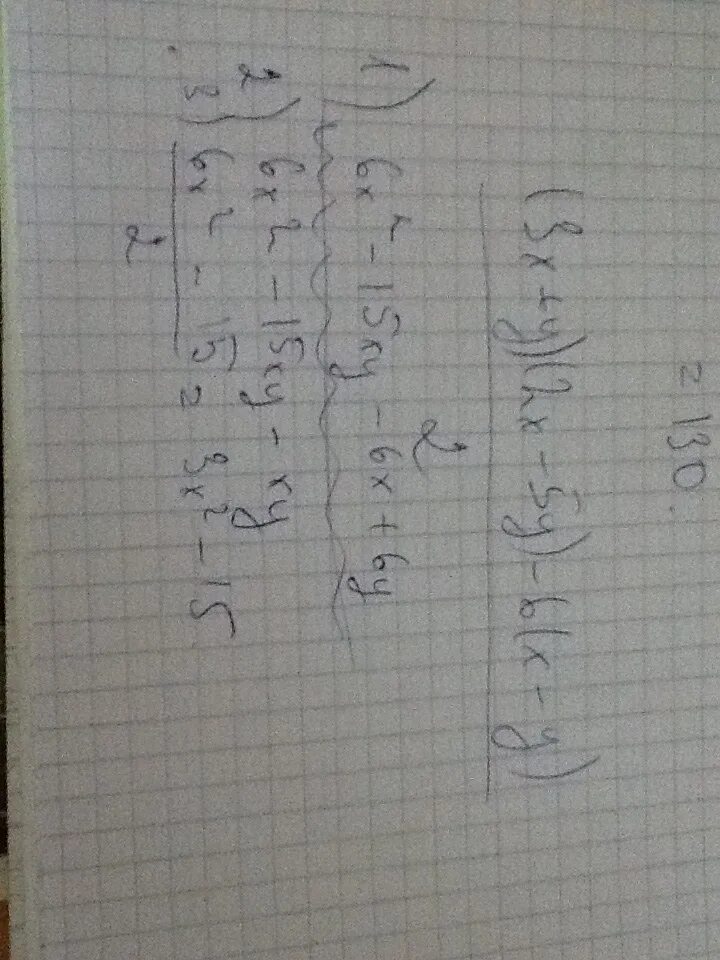 = 130.
(3x + y)(2x - 5y) - 6(x - y)
2
1) 6x² - 15xy - 6x + 6y
2) 6x² - 15xy - xy
3) 6x² - 15 = 3x² - 15
2